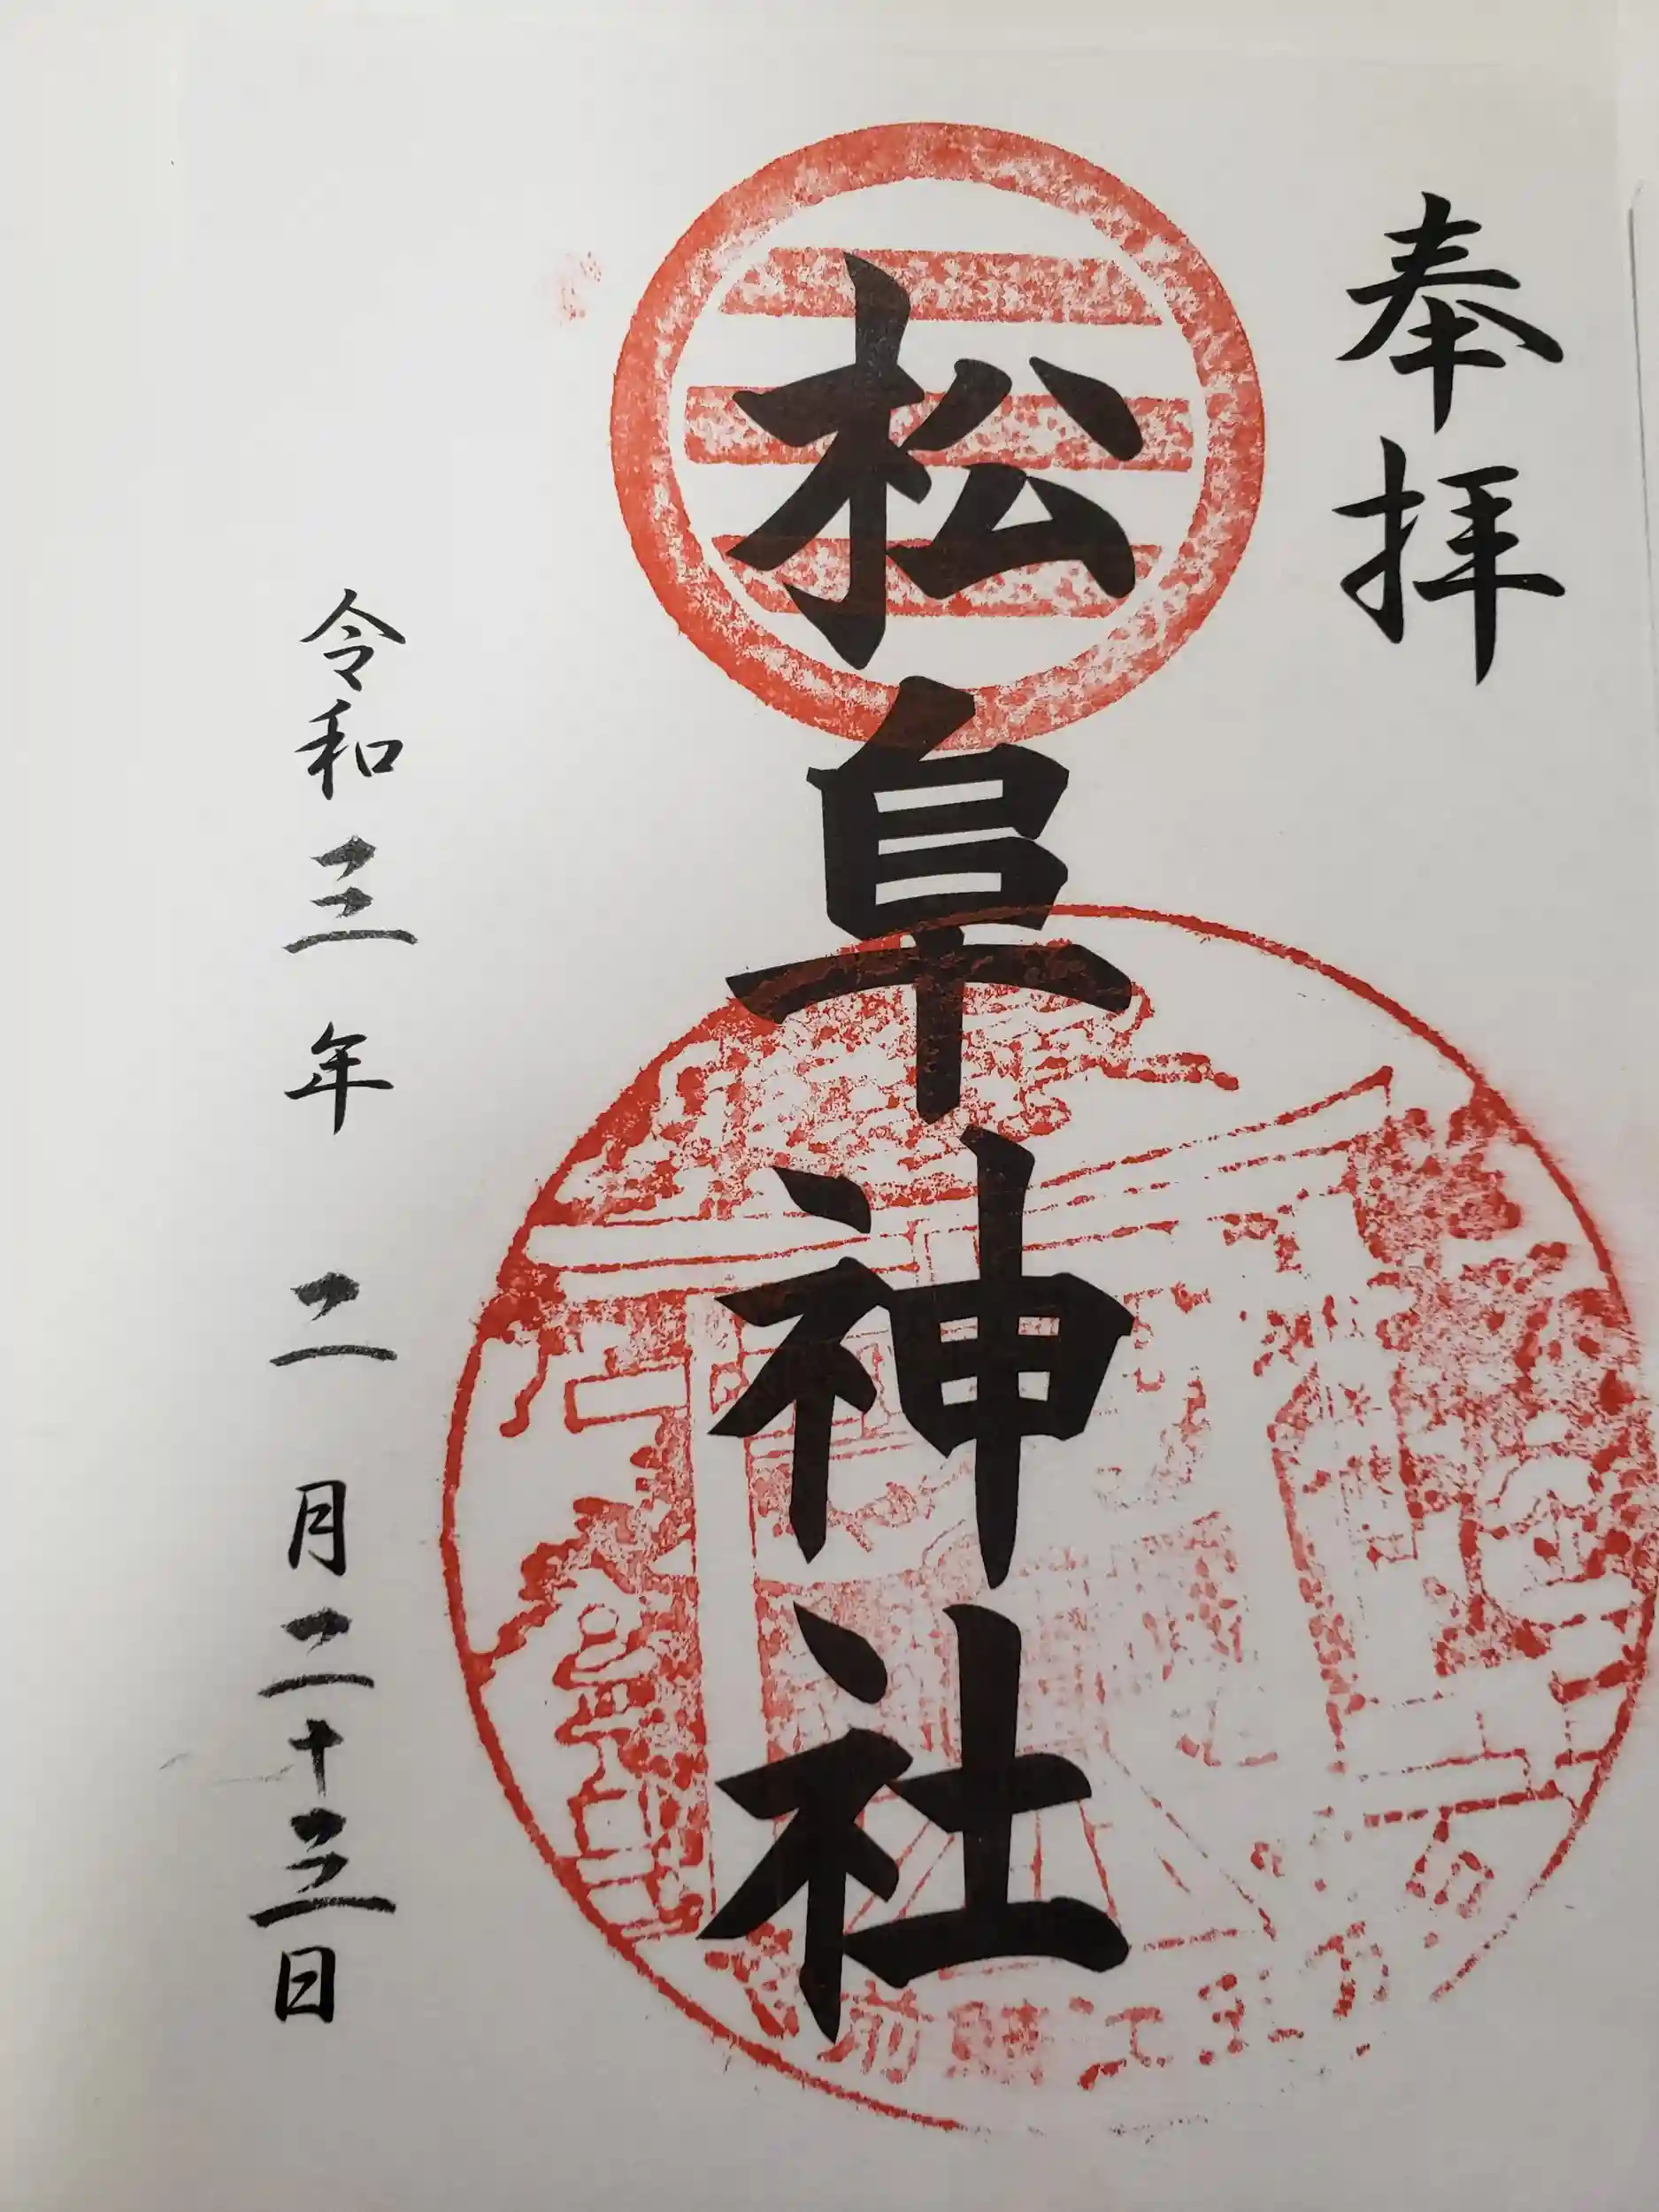 奉拝
松阜神社
令和三年二月二十三日